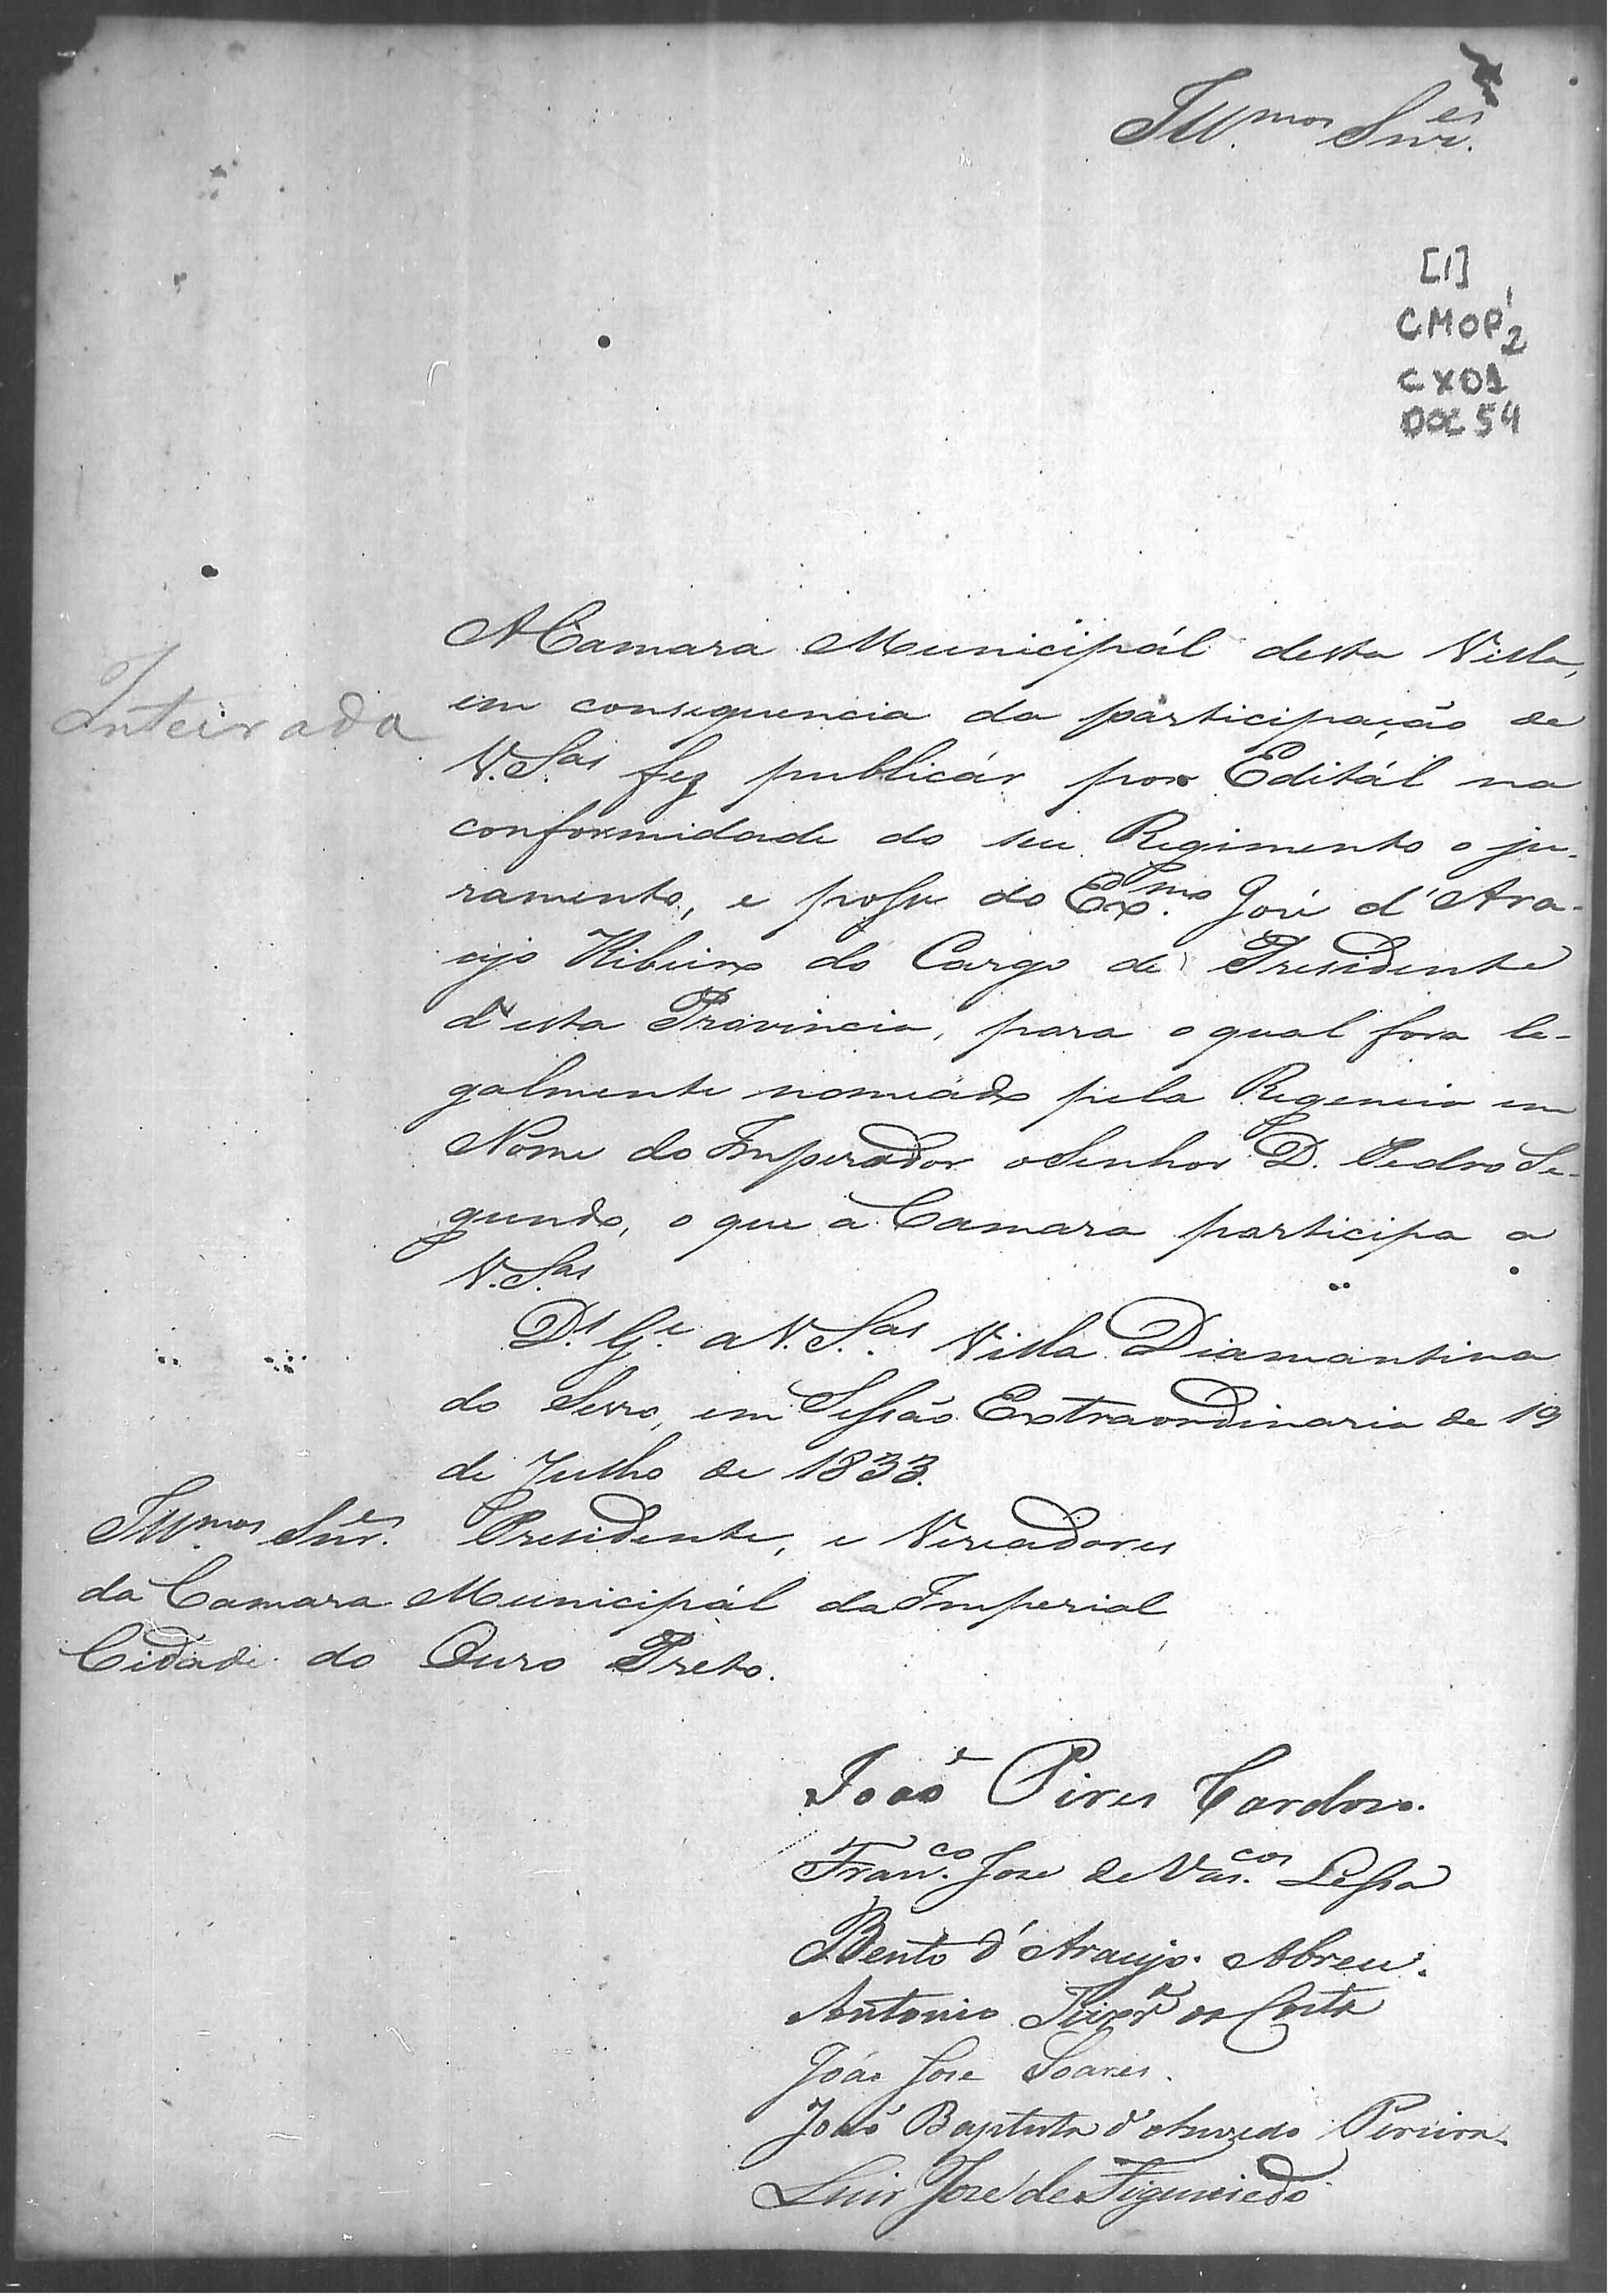 Ill.mos Snr.es
[1]
CMOP 1/2
CX 01
DOC 54
A Camara Municipál desta Villa,
Inteirada
em consequencia da participação de
V. S.as fez publicár por Editál na
conformidade do seu Regimento o ju-
ramento, e posse do Ex.mo José d'Ara-
ujo Ribeiro do Cargo de Presidente
d'esta Provincia, para o qual fora le-
galmente nomeado pela Regencia em
Nome do Imperador o Senhor D. Pedro Se-
gundo, o que a Camara participa a
V. S.as
D.s G.e a V. S.as Villa Diamantina
do Serro, em Sessão Extraordinaria de 19
de Julho de 1833.
Ill.mos Snr.es Presidente, e Vereadores
da Camara Municipál da Imperial
Cidade do Ouro Preto.
João Pires Cardoso.
Fran.co Jose de Vas.cos Lessa
Bento d'Araujo Abreu.
Antonio Teixr.a da Costa
João Jose Soares.
João Baptista d'Azevedo Pereira.
Luis José de Figueiredo